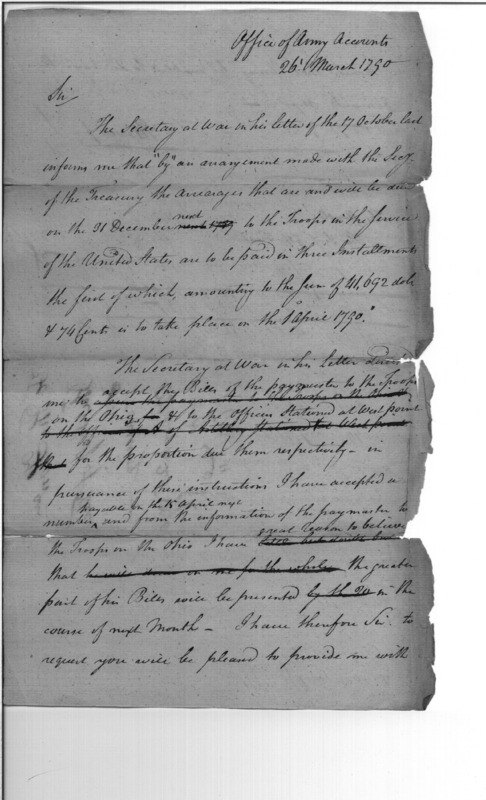 Office of Army Accounts
26th March 1790
Sir/
The Secretary at War in his letter of the 17 October last
informs me that "by" an arrangement made with the Secy.
of the Treasury the Arrearages that are and will be due
next
on the 31 December to the Troops in the service
of the United States are to be paid in three Installments
the first of which, amounting to the sum of 41,692 dols
& 74 Cents is to take place on the 1st April 1790."
The Secretary at War in his Letter
accept the Bills of the paymaster to the Troops
me to
on the Ohio & to the Officers Stationed at West point
for the proportion due them respectively - in
pursuance of these instructions I have accepted a
payable on the 15 April next
number, and from the information of the paymaster to
great reason to believe
the Troops on the Ohio I have
that the greater
part of his Bills will be presented in the
course of next Month - I have therefore Sir to
request you will be pleased to provide me with